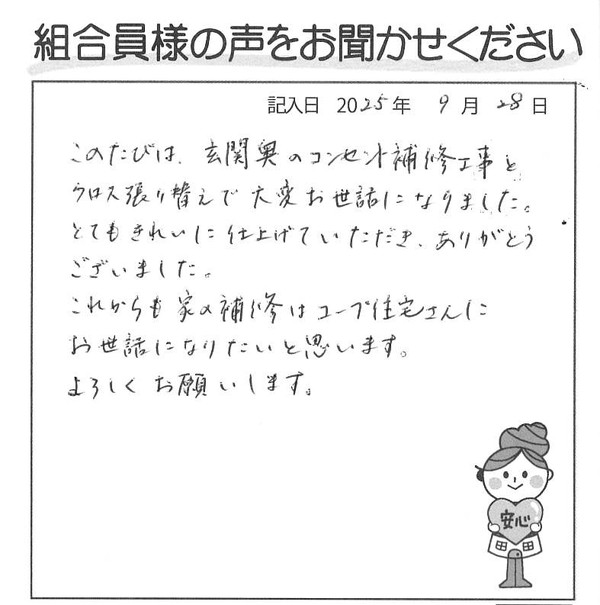 組合員様の声をお聞かせください
記入日 2025年 9月 28日
このたびは、玄関奥のコンセント補修工事と
クロス張り替えで大変お世話になりました。
とてもきれいに仕上げていただき、ありがとう
ございました。
これからも家の補修はコープ住宅さんに
お世話になりたいと思います。
よろしくお願いします。
安心